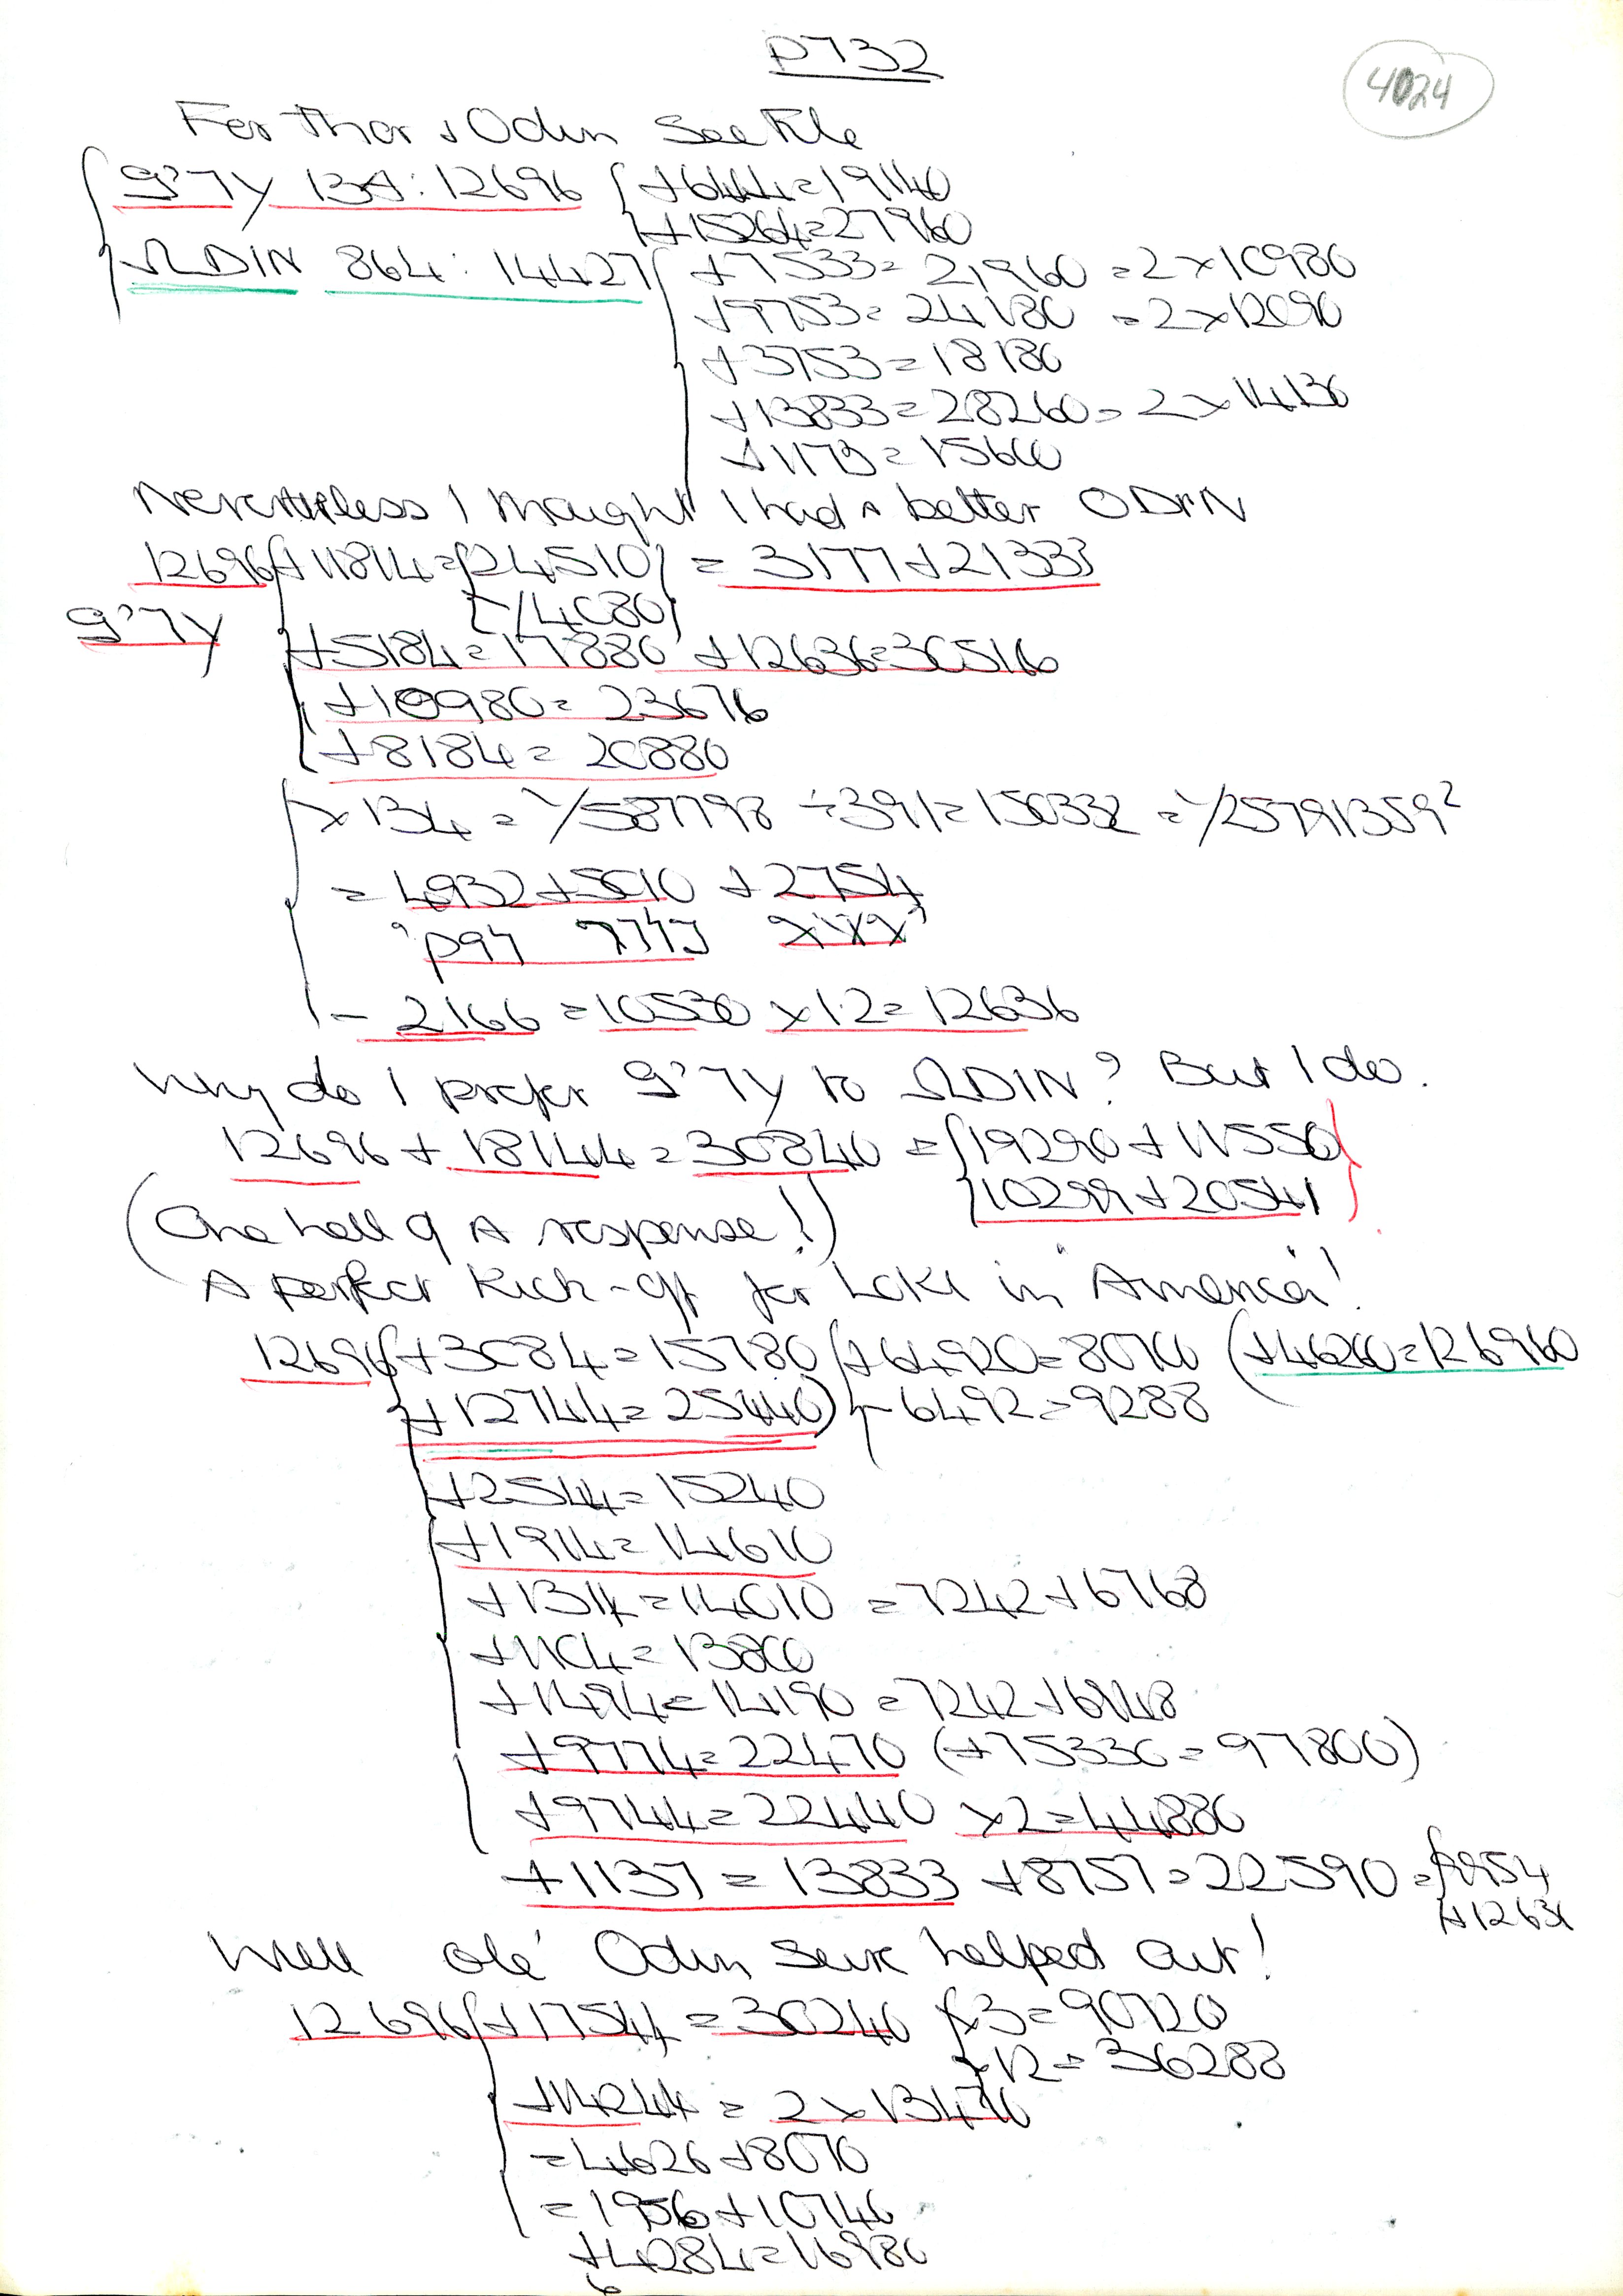 P732
4024
For Thor & Odin See File
134: 12696 { +6444=19140
+15264=27960
ΩDIN 864: 14427 { +7533= 21960 =2×10980
+9753= 24180 =2×12090
+3753=18180
+13833=28260= 2×14130
+1173=15600
Nevertheless I thought I had A better ODIN
12696 { +11814= {24510} = 3177+21333
{-/4080}
+5184=17880 +12636=30516
+10980= 23676
+8184= 20880
×134 = √587798 ÷391=150332 = √25791359²
= 4932+5010 +2754
- 2166 =10530 ×1.2= 12636
Why do I prefer to ΩDIN? But I do.
12696 + 18144=30840 = {19290+11550}
{10299+20541
(One hell of A response!)
A perfect Kick-off for Loki in "America"!
12696 { +3084=15780 { +64920=80700 (+46260=126960
+12744= 25440) { -6492=9288
+2544=15240
+1914=14610
+1314=14010 =7242+6768
+1104=13800
+1494=14190 =7242+6948
+9774=22470 (+75330=97800)
+9744=22440 ×2=44880
+1137 = 13833 +8757=22590 = { 9954
+12636
Well olé Odin Sure helped Out!
12696 { +17544 =30240 { ×3=90720
×12= 36288
+14244 = 2×13470
=4626+8070
= 1956+10740
+4284=16980